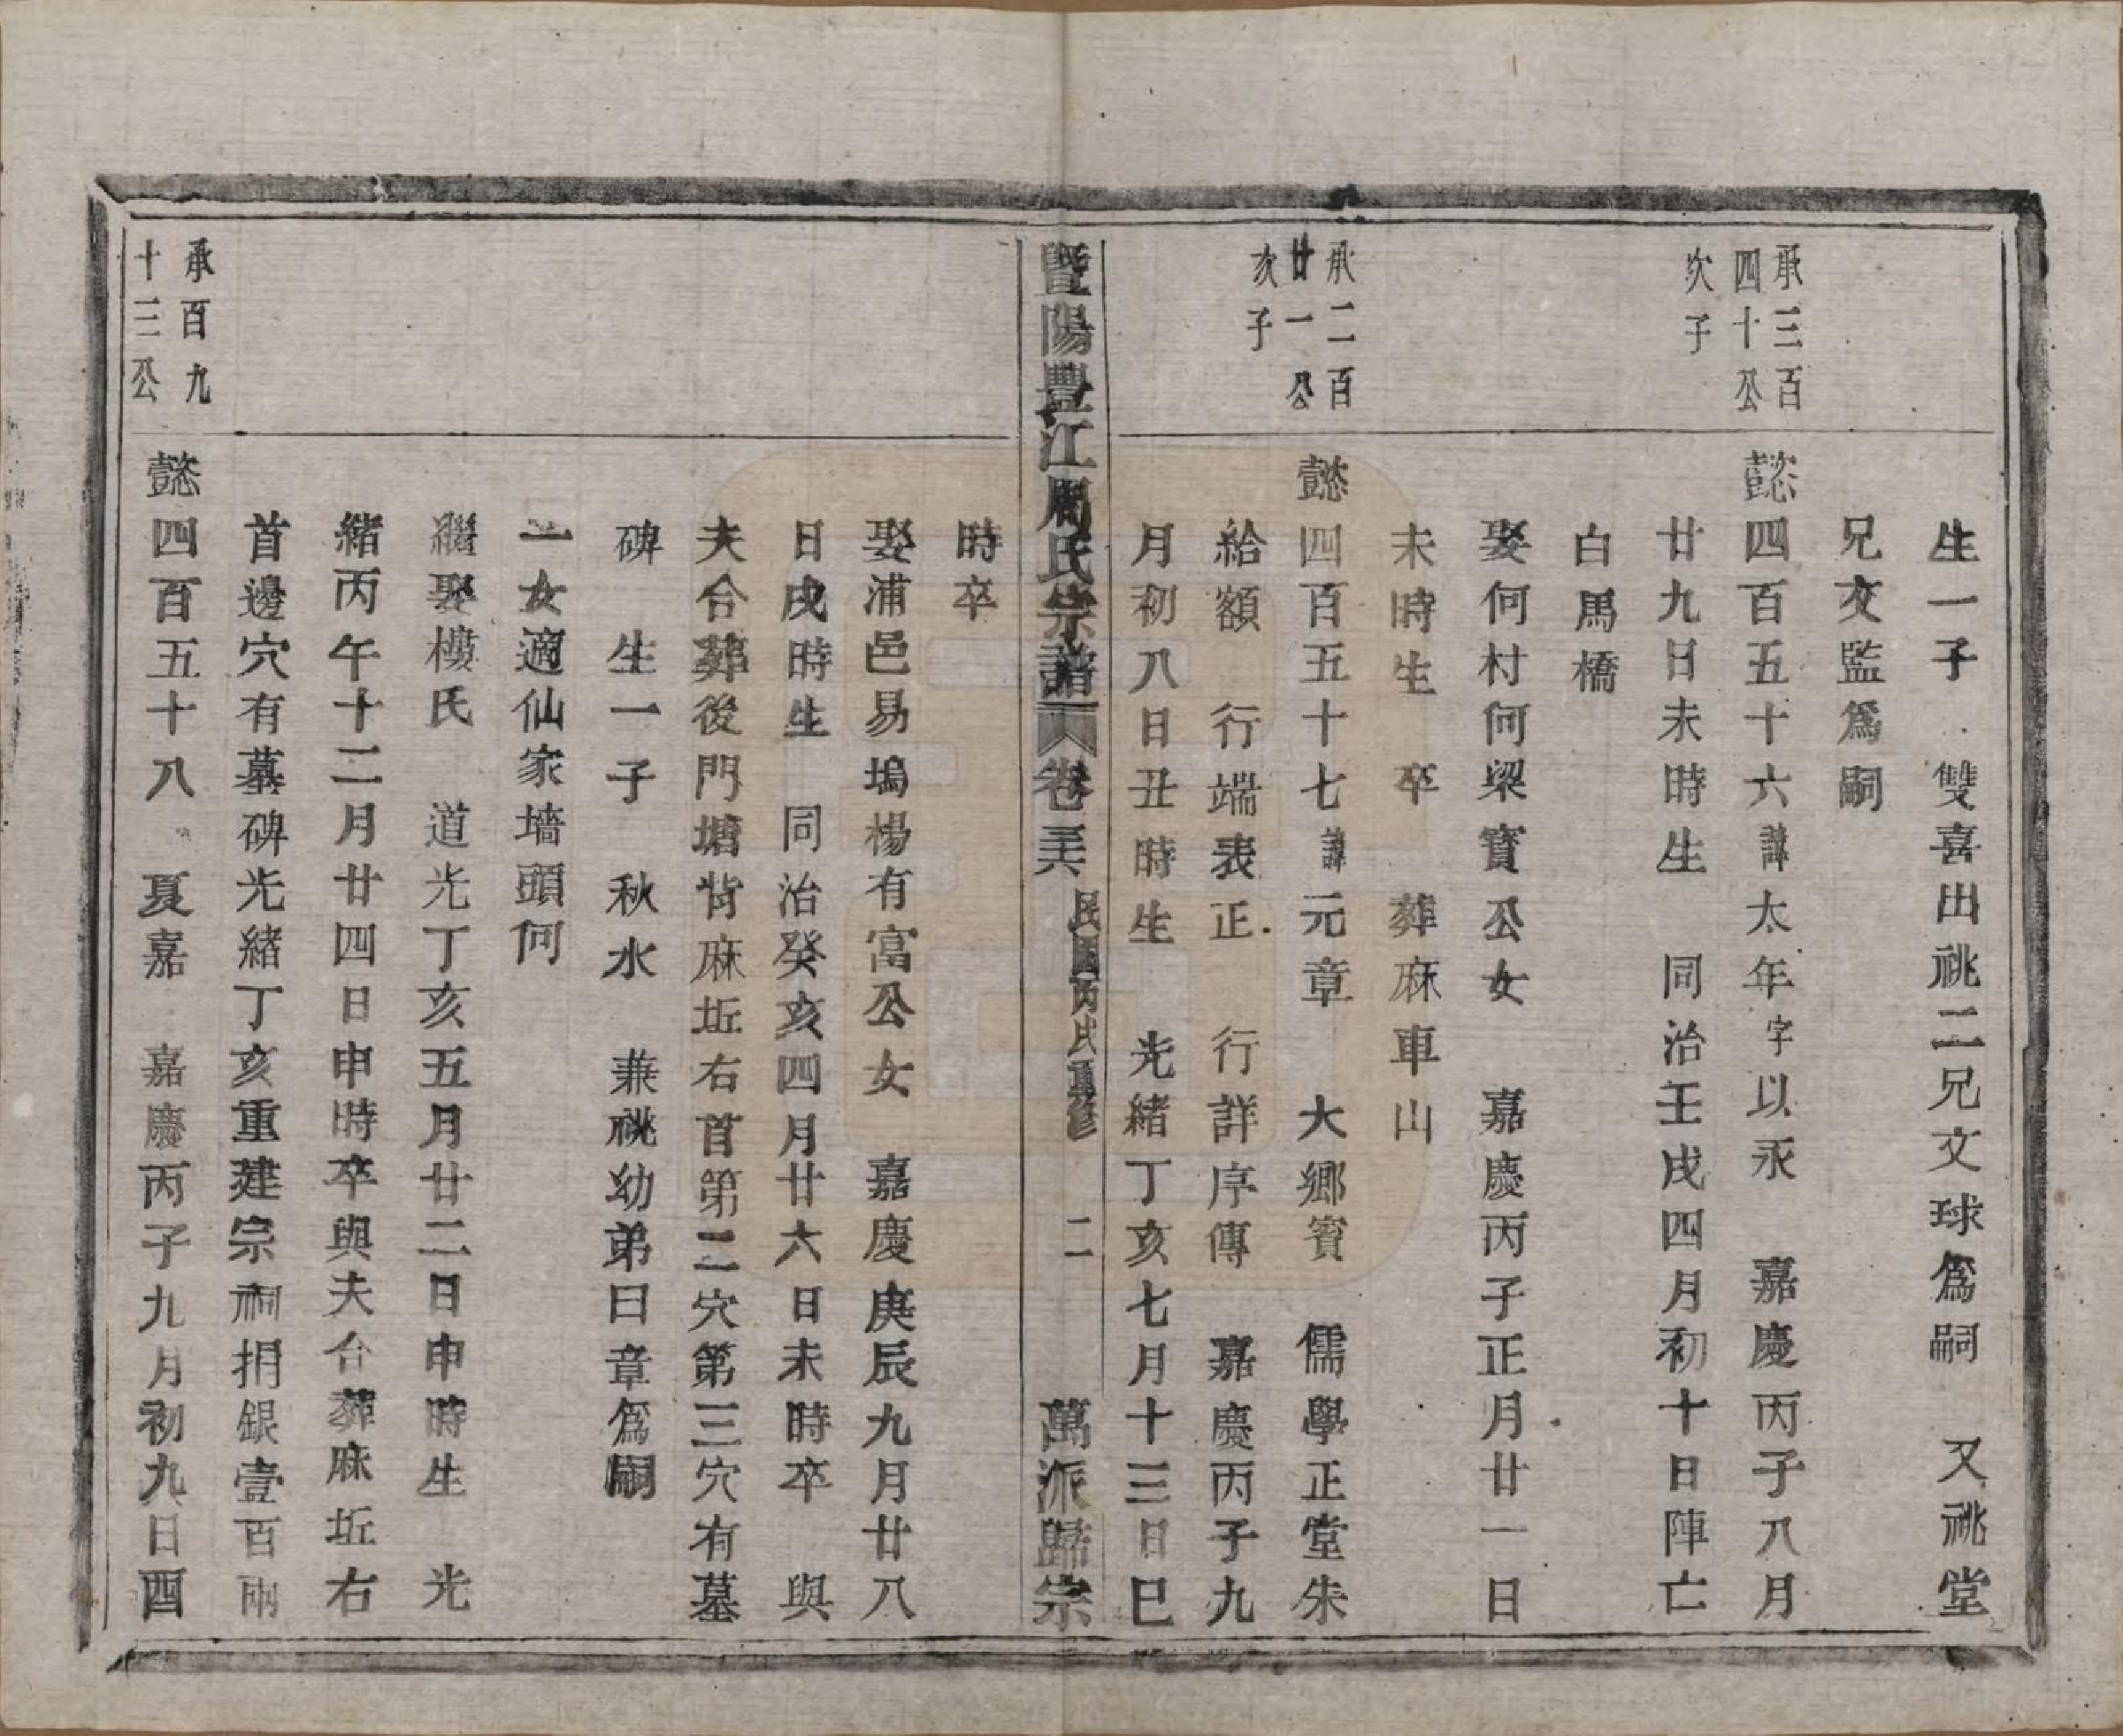 生一子　雙喜出祧二兄文球爲嗣　又祧堂
兄文監爲嗣
承三百
四十公
次子
懿四百五十六諱太年字以汞　嘉慶丙子八月
廿九日未時生　同治壬戌四月初十日陣亡
白馬橋
娶何村何梁寶公女　嘉慶丙子正月廿一日
未時生　卒　葬麻車山
承二百
廿一公
次子
懿四百五十七諱元章　大鄉賓　儒學正堂朱
給額　行端表正　行詳序傳　嘉慶丙子九
月初八日丑時生　光緒丁亥七月十三日巳
暨陽豊江周氏宗譜　卷三六　民國丙戌重修　二　萬派歸宗
時卒
娶浦邑易塢楊有富公女　嘉慶庚辰九月廿八
日戌時生　同治癸亥四月廿六日未時卒　與
夫合葬後門塘背麻坵右首第二穴第三穴有墓
碑　生一子　秋水　兼祧幼弟曰章爲嗣
一女適仙家墻頭何
繼娶樓氏　道光丁亥五月廿二日申時生　光
緒丙午十二月廿四日申時卒與夫合葬麻坵右
首邊穴有墓碑光緒丁亥重建宗祠捐銀壹百兩
承百九
十三公
懿四百五十八　夏嘉　嘉慶丙子九月初九日酉